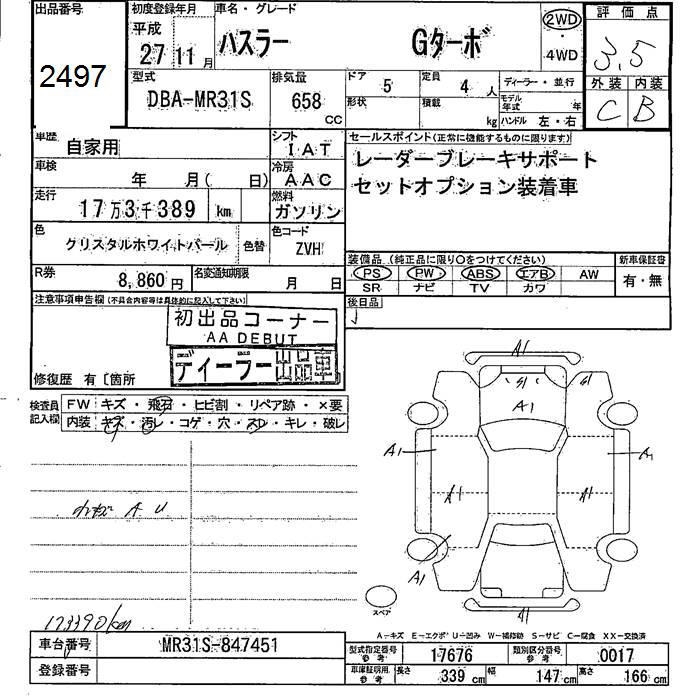 出品番号
2497
初度登録年月
平成
27 11月
車名・グレード
ハスラー Gターボ
2WD
・
4WD
評価点
3,5
外装 内装
C B
型式
DBA-MR31S
排気量
658
CC
ドア
5
定員
4 人
ディーラー・並行
モデル年式 年
形状
積載
kg
ハンドル 左・右
車歴
自家用
シフト
IAT
車検
年 月( 日)
冷房
AAC
走行
17万3千389 km
燃料
ガソリン
色
クリスタルホワイトパール
色替
色コード
ZVH
R券
8,860円
名変通知期限
月 日
セールスポイント(正常に機能するものに限ります)
レーダーブレーキサポート
セットオプション装着車
装備品(純正品に限り○をつけてください)
新車保証書
PS PW ABS エアB AW
有・無
SR ナビ TV カワ
後日品
注意事項申告欄(不具合内容等は具体的に記入して下さい)
初出品コーナー
AA DEBUT
ディーラー出品車
修復歴 有〔箇所
検査員
記入欄
FW キズ・飛石・ヒビ割・リペア跡・×要
内装 キズ・汚レ・コゲ・穴・スレ・キレ・破レ
A U
173390km
A1
S1
S1
A1
A1
A1
A1
A1
A1
A1
スペア
A-キズ E-エクボ U-凹み W-補修跡 S-サビ C-腐食 XX-交換済
車台番号
MR31S-847451
登録番号
型式指定番号
参考
17676
類別区分番号
参考
0017
車庫証明用
参考
長さ 339 cm 幅 147 cm 高さ 166 cm